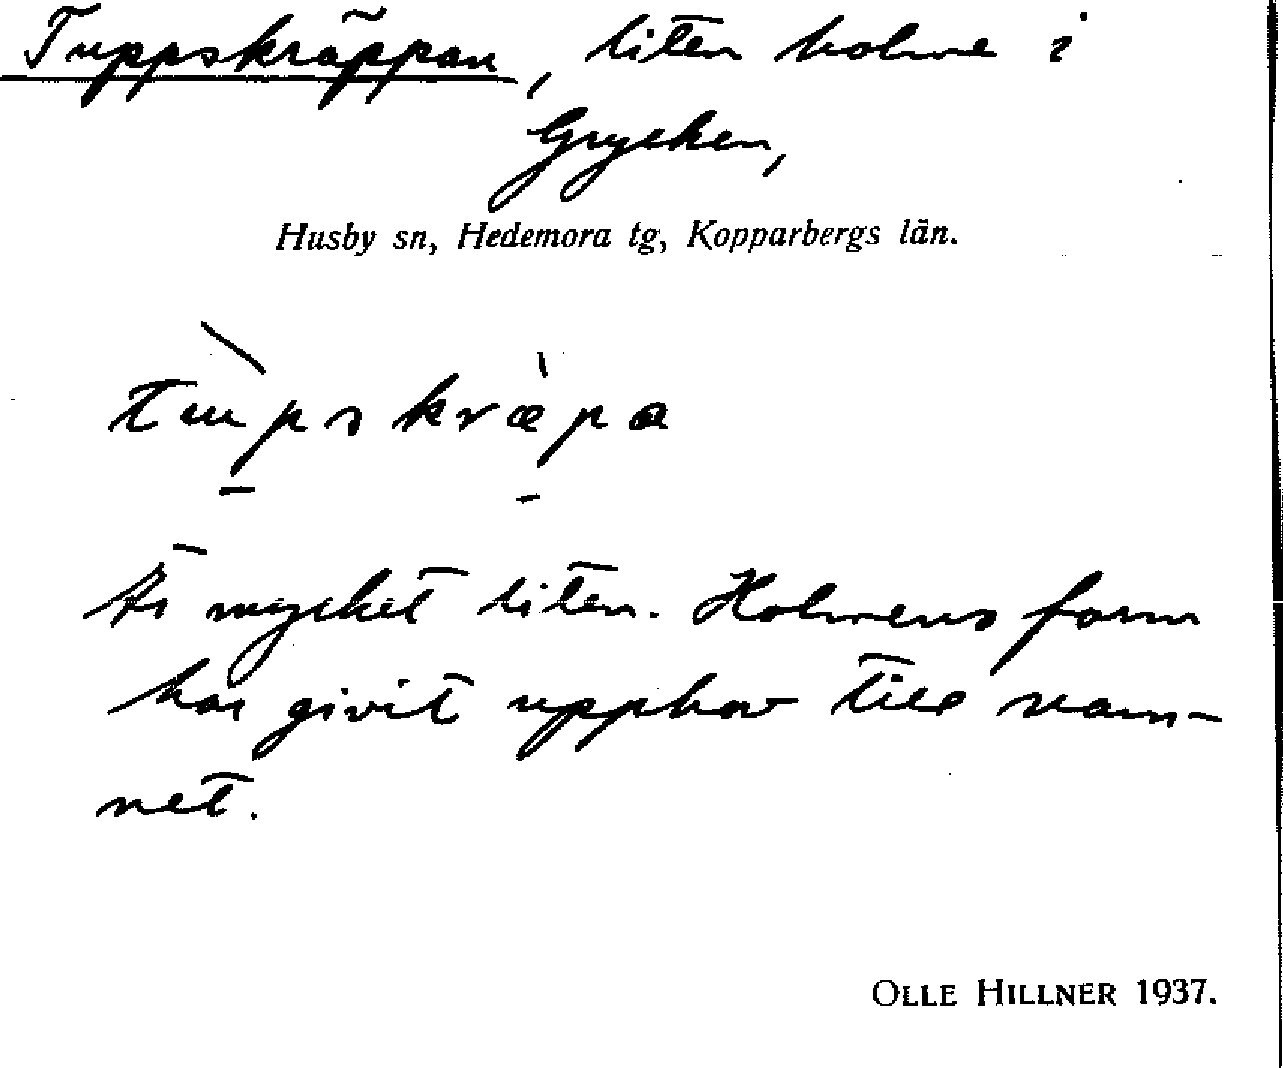 Tuppskräppan, liten holme i
Grycken,
Husby sn, Hedemora tg, Kopparbergs län.
tùpskræ̀pa
Är mycket liten. Holmens form
har givit upphov till nam-
net.
OLLE HILLNER 1937.